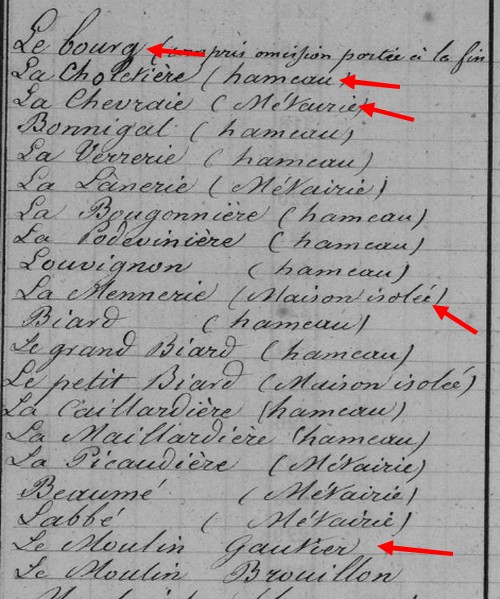 Le bourg (compris omission portée à la fin
La Choletière (hameau)
La Chevraie (Métairie)
Bonnigal (hameau)
La Verrerie (hameau)
La Lànerie (Métairie)
La Bougonnière (hameau)
La Podevinière (hameau)
Louvignon (hameau)
La Mennerie (Maison isolée)
Biard (hameau)
Le grand Biard (hameau)
Le petit Biard (Maison isolée)
La Caillardière (hameau)
La Maillardière (hameau)
La Picaudière (Métairie)
Beaumé (Métairie)
Labbé (Métairie)
Le Moulin Gautier
Le Moulin Brouillon